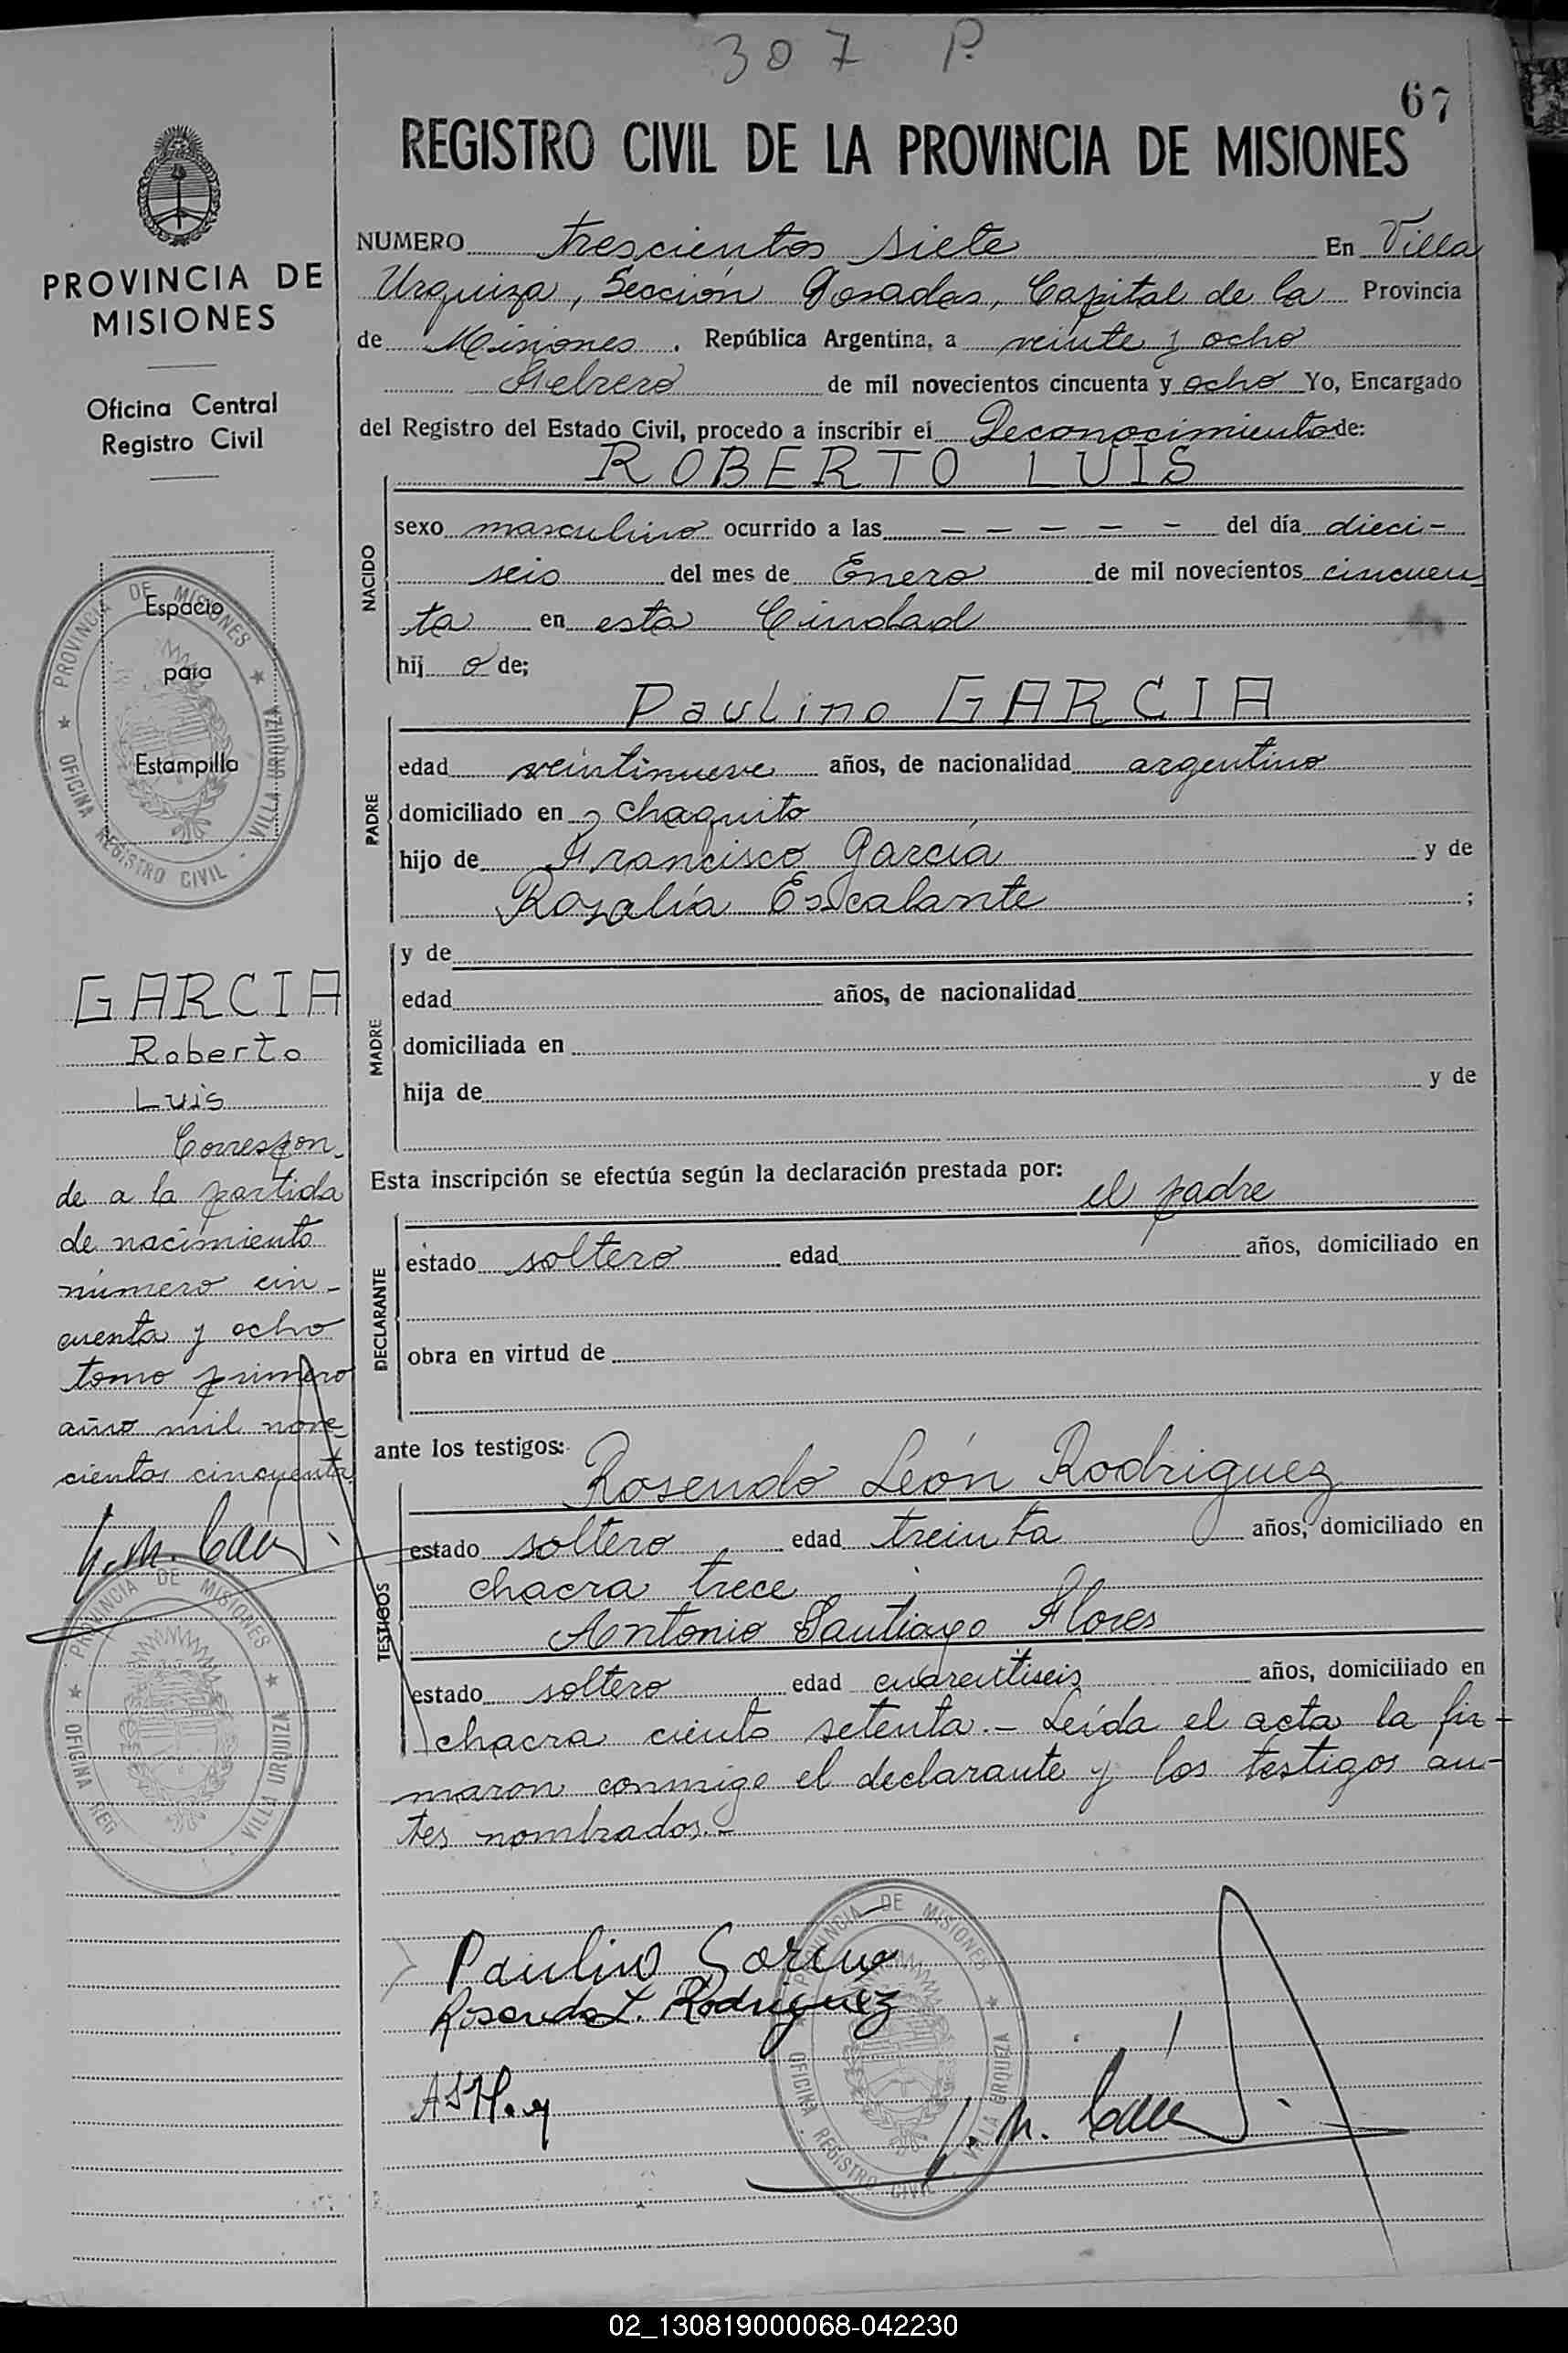 307 P.
67
REGISTRO CIVIL DE LA PROVINCIA DE MISIONES
PROVINCIA DE
MISIONES
Oficina Central
Registro Civil
Espacio
para
Estampilla
PROVINCIA DE MISIONES
OFICINA REGISTRO CIVIL - VILLA URQUIZA
GARCIA
Roberto
Luis
Correspon-
de a la partida
de nacimiento
número cin-
cuenta y ocho
tomo primero
año mil nove-
cientos cincuenta
PROVINCIA DE MISIONES
OFICINA REG VILLA URQUIZA
NUMERO trescientos siete En Villa
Urquiza, Sección Posadas, Capital de la Provincia
de Misiones. República Argentina, a veinte y ocho
Febrero de mil novecientos cincuenta y ocho Yo, Encargado
del Registro del Estado Civil, procedo a inscribir el Reconocimiento de:
NACIDO
ROBERTO LUIS
sexo masculino ocurrido a las - - - - - del día dieci-
seis del mes de Enero de mil novecientos cincuen
ta en esta Ciudad
hijo de;
PADRE
Paulino GARCIA
edad veintinueve años, de nacionalidad argentino
domiciliado en chaquito
hijo de Francisco García y de
Rozalía Escalante ;
MADRE
y de
edad años, de nacionalidad
domiciliada en
hija de y de
Esta inscripción se efectúa según la declaración prestada por: el padre
DECLARANTE
estado soltero edad años, domiciliado en
obra en virtud de
ante los testigos:
TESTIGOS
Rosendo León Rodriguez
estado soltero edad treinta años, domiciliado en
chacra trece
Antonio Santiago Flores
estado soltero edad cuarentiseis años, domiciliado en
chacra ciento setenta.- Leída el acta la fir-
maron conmigo el declarante y los testigos an-
tes nombrados.-
Paulino Garcia
Rosendo L. Rodriguez
PROVINCIA DE MISIONES
OFICINA REGISTRO CIVIL - VILLA URQUIZA
02_130819000068-042230